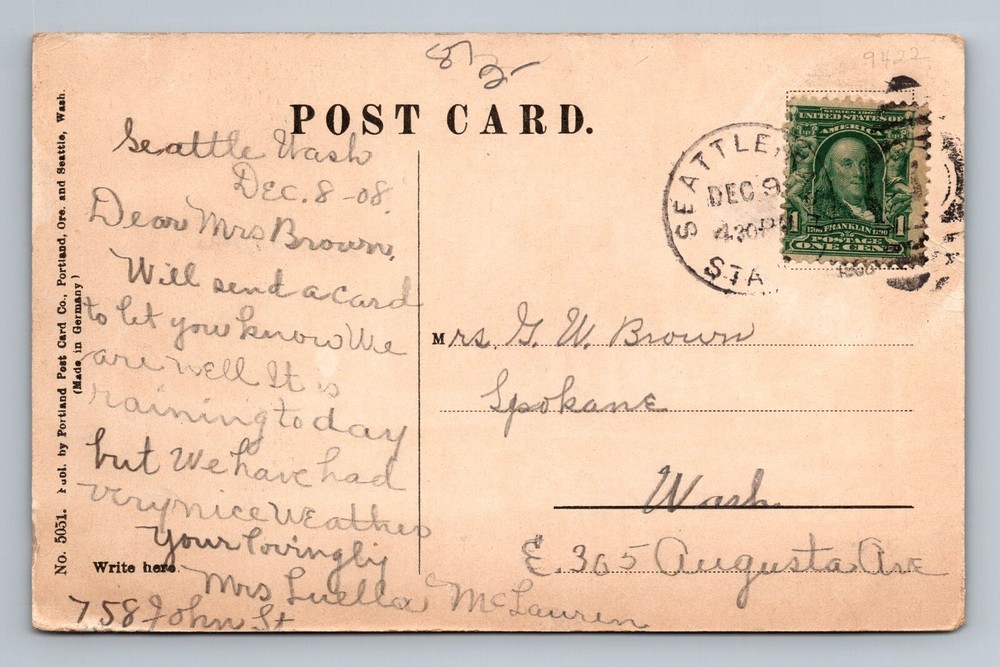 9422
POST CARD.
Seattle Wash
Dec. 8-08.
Dear Mrs Brown,
Will send a card
to let you know We
are well It is
raining to day
but We have had
very nice weather
Your lovingly
Mrs Luella McLauren
758 John St
Write here.
No. 5051. Publ. by Portland Post Card Co., Portland, Ore. and Seattle, Wash.
(Made in Germany)
SEATTLE
DEC 9
4 30 P
STA
1908
SERIES 1902
UNITED STATES OF
AMERICA
1706 FRANKLIN 1790
POSTAGE
1 1
ONE CENT
Mrs. G. W. Brown
Spokane
Wash.
E. 305 Augusta Ave